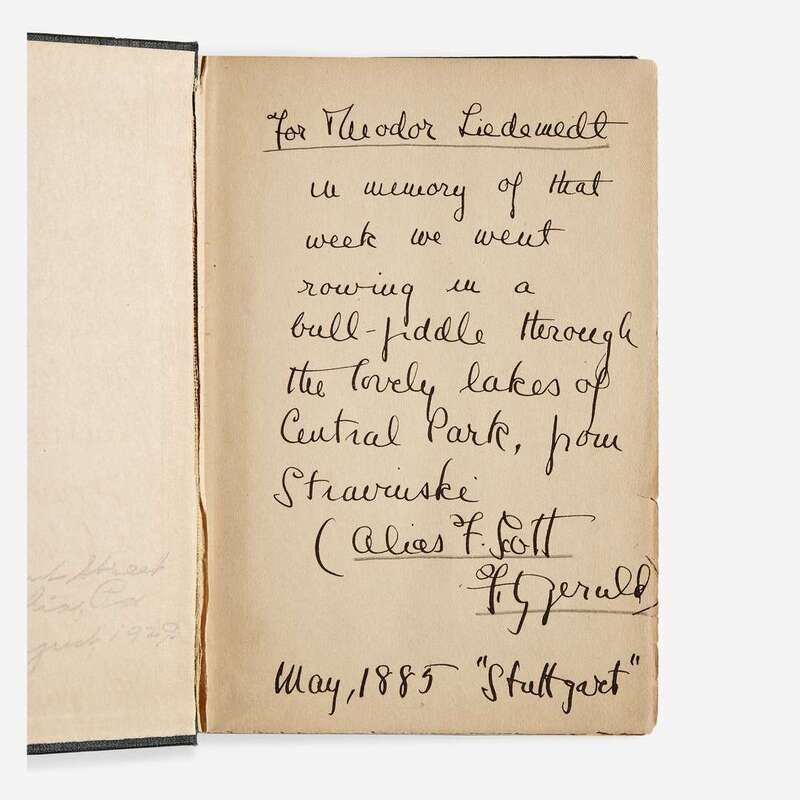 For Theodor Liedemedt
in memory of that
week we went
rowing in a
bull-fiddle through
the lovely lakes of
Central Park, from
Stravinski
(alias F. Scott
Fitzgerald)
May, 1885 "Stuttgart"
Street
August 1929